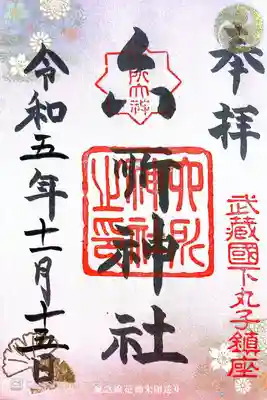 奉拝
武蔵國下丸子鎮座
六所神社
六所神社之印
令和五年十一月十五日